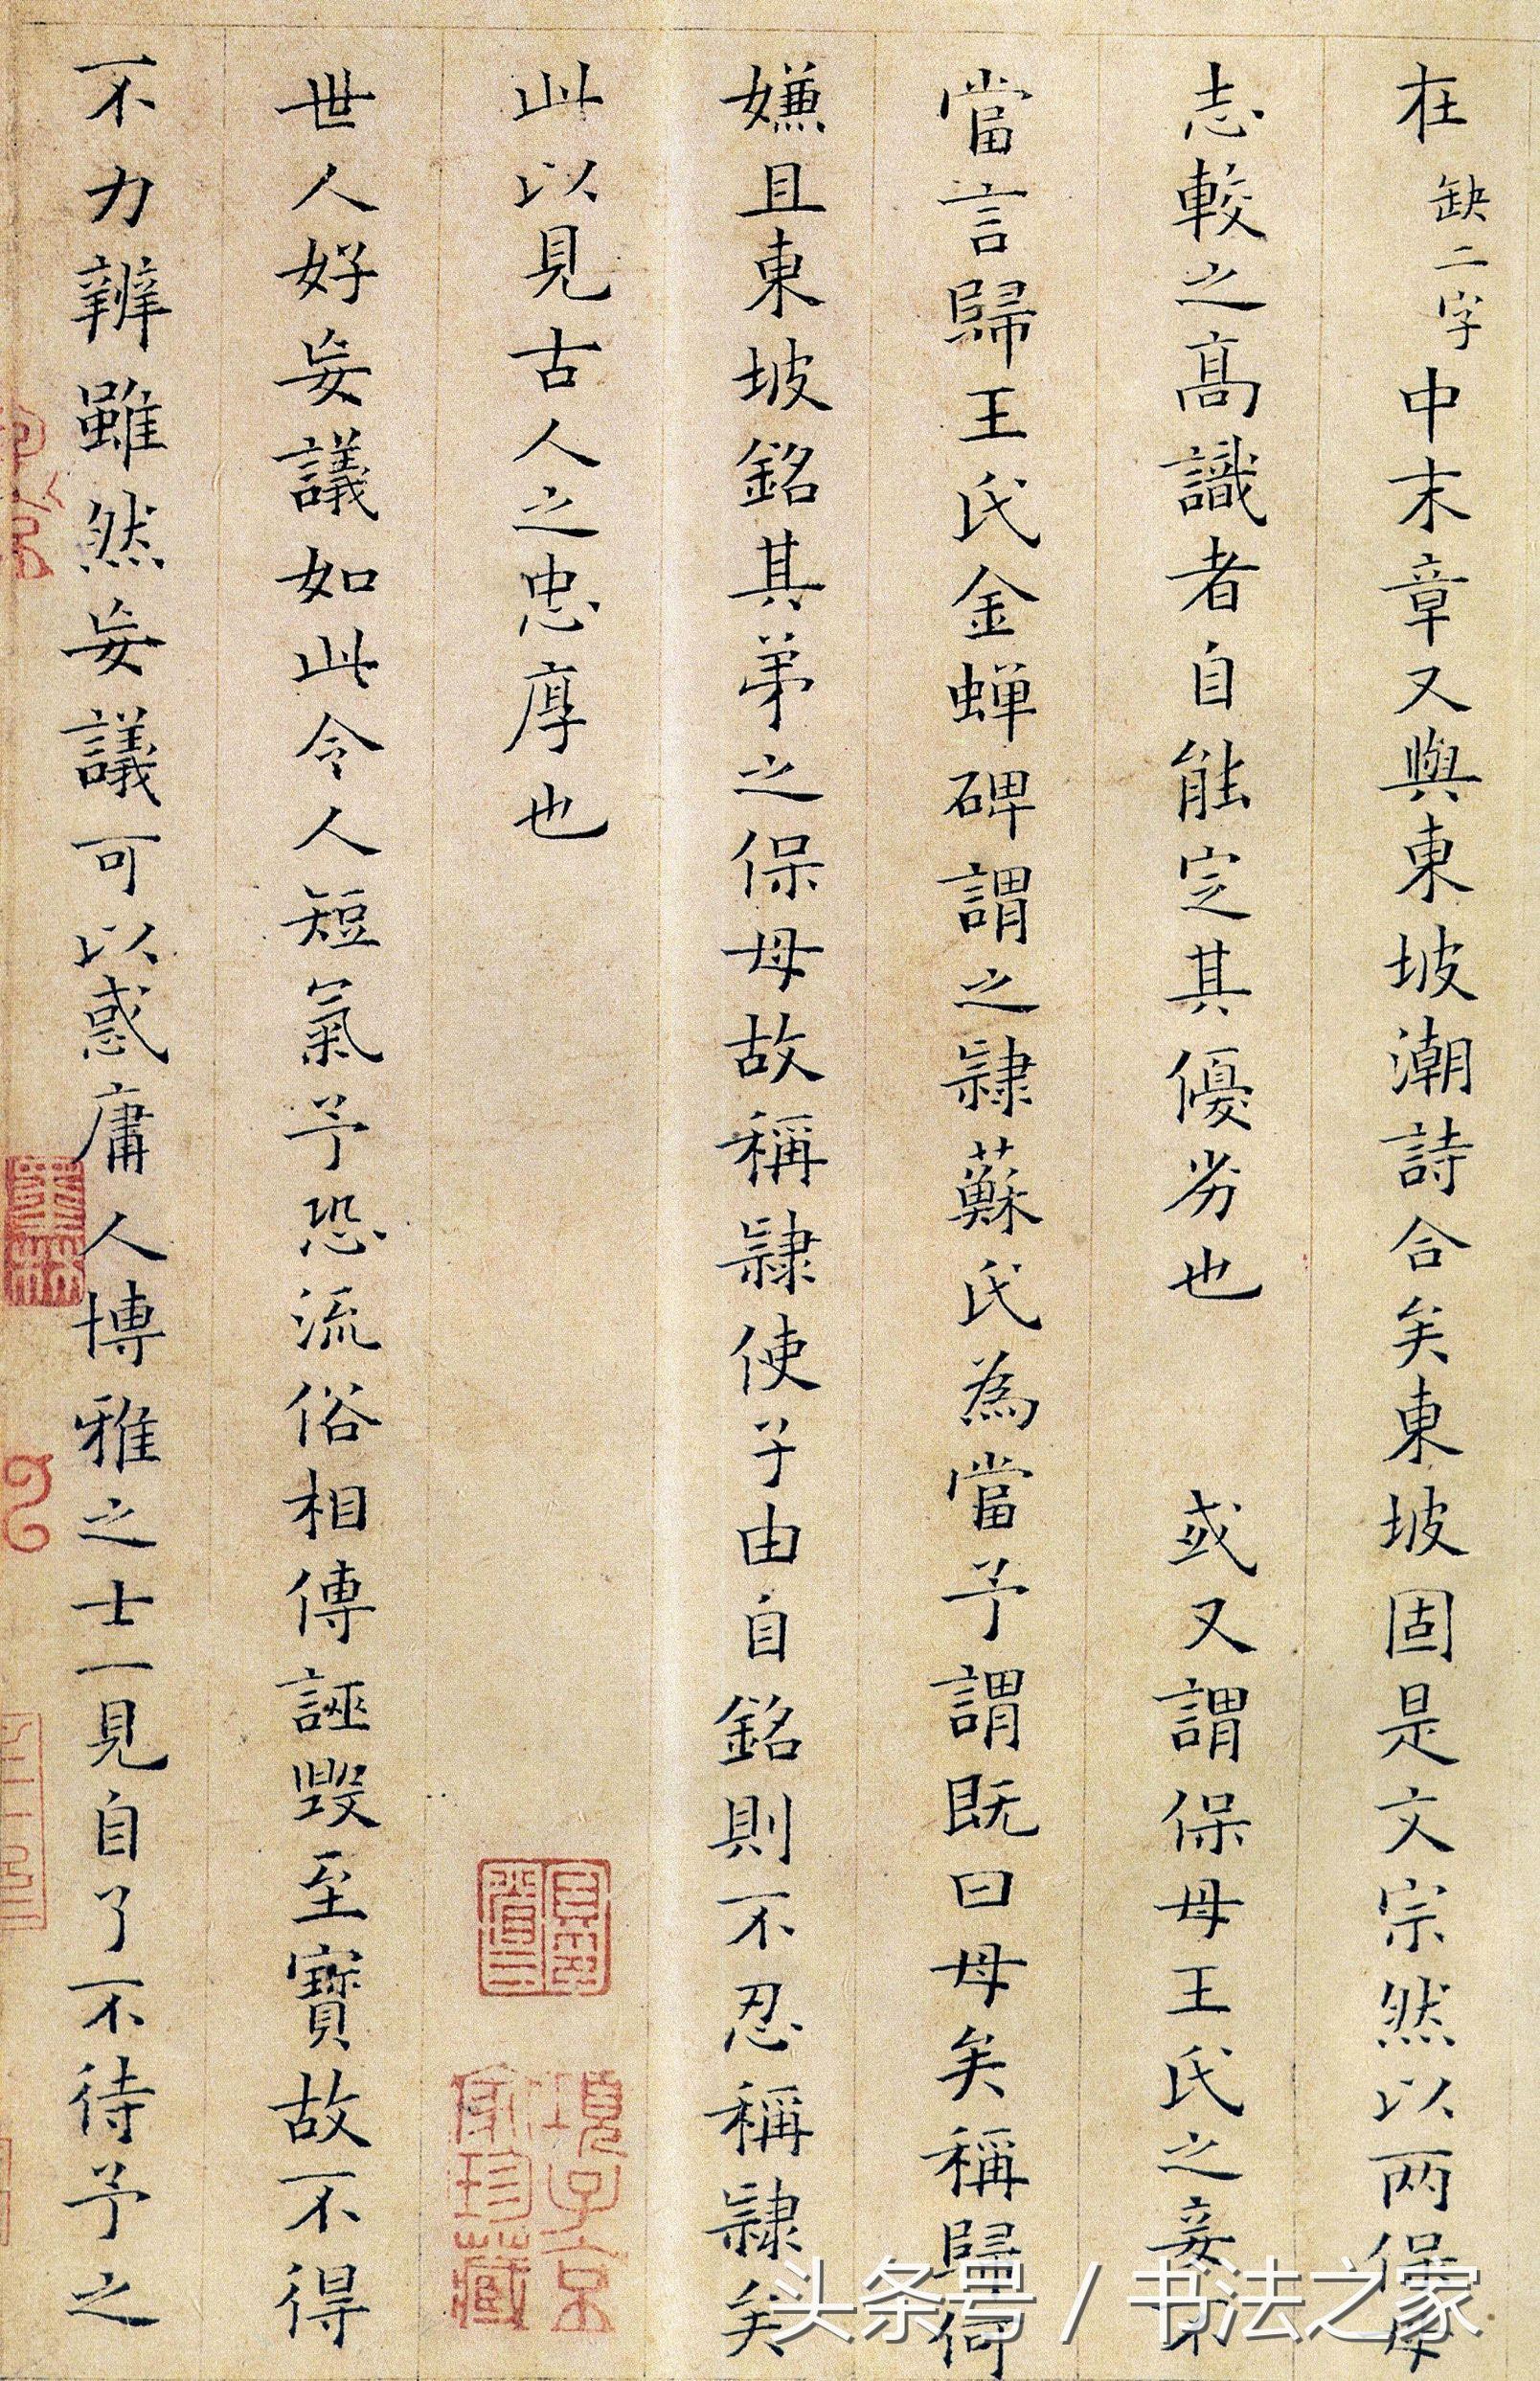 在缺二字中末章又與東坡潮詩合矣東坡固是文宗然以两保母
志較之高識者自能定其優劣也 或又謂保母王氏之妾不
當言歸王氏金蟬碑謂之隷蘇氏為當予謂既曰母矣稱歸何
嫌且東坡銘其弟之保母故稱隷使子由自銘則不忍稱隷矣
此以見古人之忠厚也
世人好妄議如此令人短氣予恐流俗相傳誣毀至寶故不得
不力辨雖然妄議可以惑庸人博雅之士一見自了不待予之
項子京家珍藏
头条号 / 书法之家